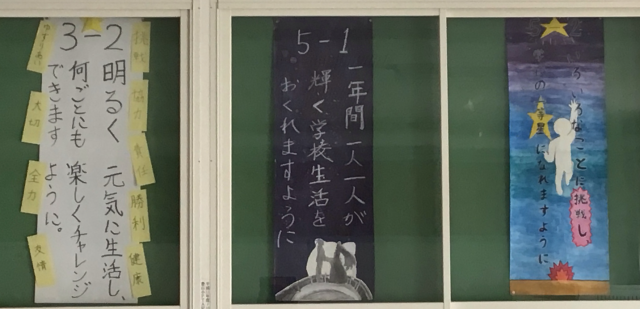 3-2
明るく 元気に生活し、
何ごとにも 楽しくチャレンジ
できます ように。
挑戦
協力
責任
勝利
健康
大切
全力
友情
5-1
一年間 一人一人が
輝く学校生活を
おくれますように
いろいろなことに挑戦し
学年の一等星になれますように